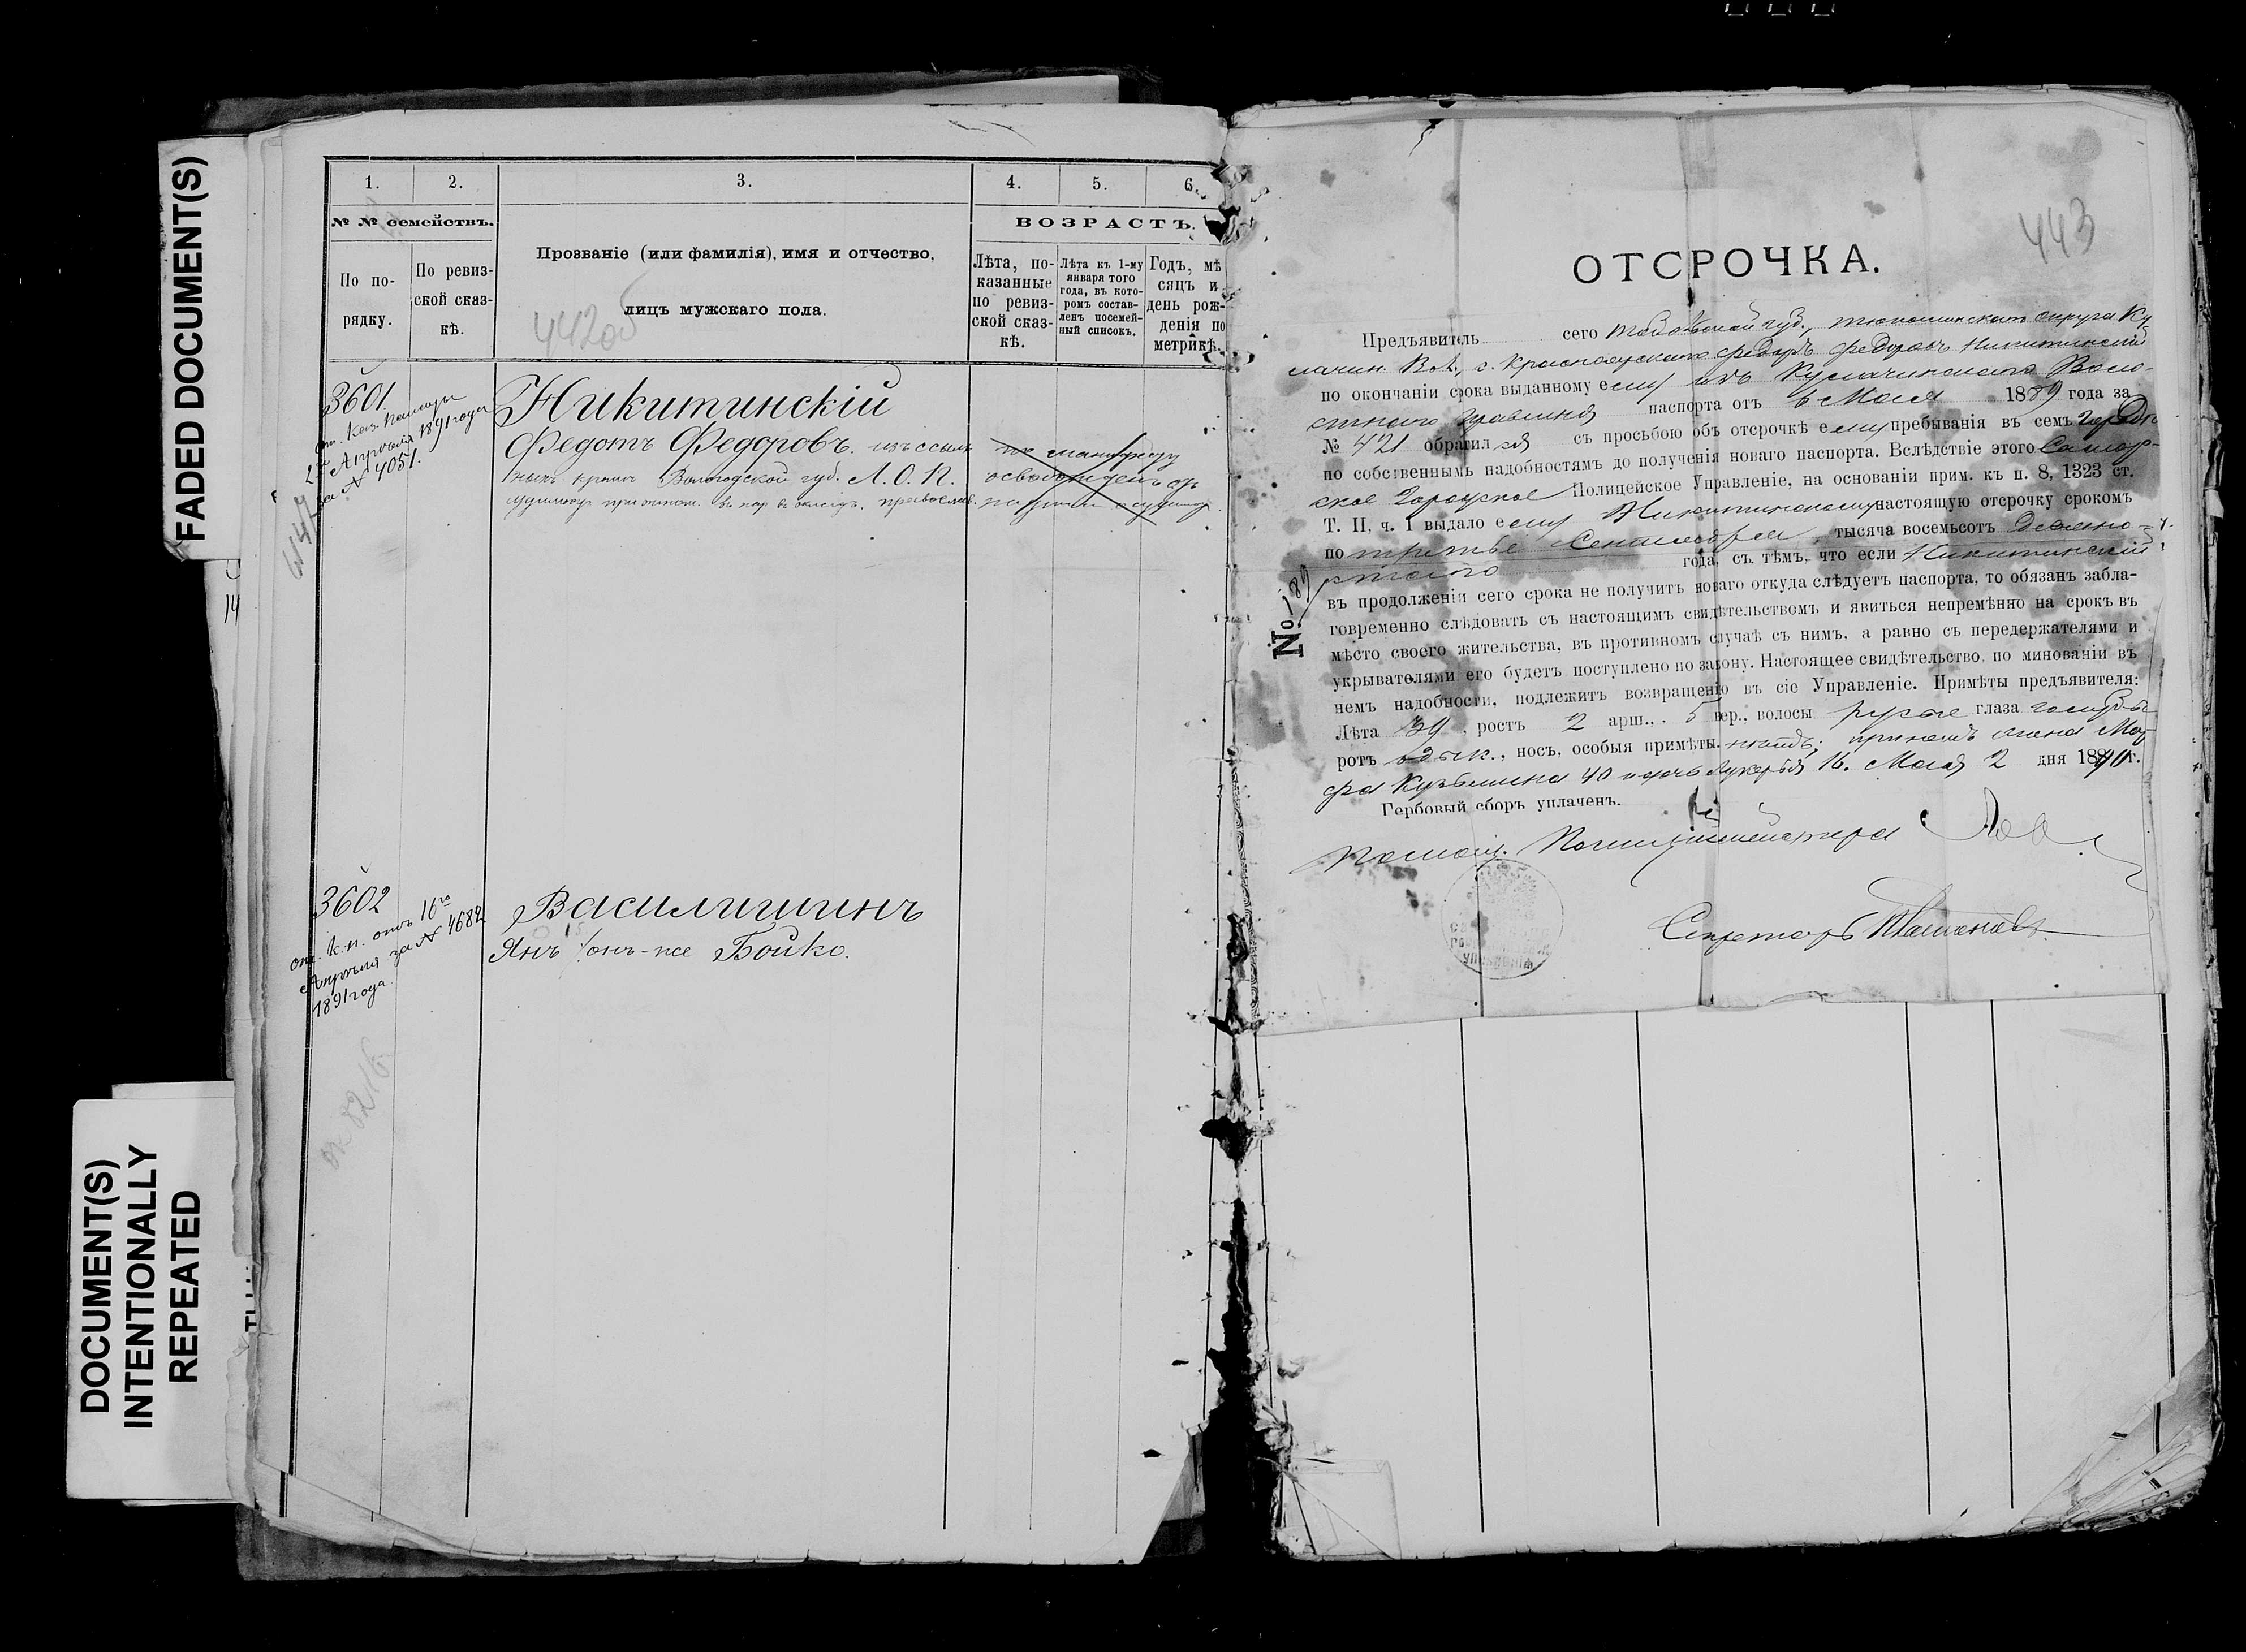 FADED DOCUMENT(S)
DOCUMENT(S)
INTENTIONALLY
REPEATED
1. 2. 3. 4. 5. 6.
№ № семействъ.
По по-
рядку.
По ревиз-
ской сказ-
кѣ.
Прозваніе (или фамилія), имя и отчество,
лицъ мужскаго пола.
442об
ВОЗРАСТЪ.
Лѣта, по-
казанные
по ревиз-
ской сказ-
кѣ.
Лѣта къ 1-му
января того
года, въ кото-
ромъ состав-
ленъ посемей-
ный списокъ.
Годъ, мѣ
сяцъ и
день рож-
денія по
метрикѣ.
3601
от. Каз. Палаты
2 Апрѣля 1891 года
за № 4051.
Никитинскій
Федотъ Федоровъ. изъ ссыль
ныхъ крест Вологодской губ. Л. О. П.
православ.
по манифесту
освобожденъ отъ
3602
от. к.п. отъ 16го
Апрѣля за № 4682
1891 года
Василишинъ
Янъ онъ-же Бойко.
443
ОТСРОЧКА.
Предъявитель сего Тобольской губ., Тюкалинскаго округа Ку
лачин. Вол., с. Красноярскаго Федотъ Федоровъ Никитинскій
по окончаніи срока выданному ему изъ Кулачинскаго Воло-
стнаго Правленія паспорта отъ 6 Мая 1889 года за
№ 421 обратился съ просьбою объ отсрочкѣ ему пребыванія въ семъ городѣ
по собственнымъ надобностямъ до полученія новаго паспорта. Вслѣдствіе этого Самар-
ское Городское Полицейское Управленіе, на основаніи прим. къ п. 8, 1323 ст.
Т. II, ч. I выдало ему Никитинскому настоящую отсрочку срокомъ
по третье Сентября, тысяча восемьсотъ девяно-
стаго года, съ тѣмъ, что если Никитинскій
№ 189
въ продолженіи сего срока не получитъ новаго откуда слѣдуетъ паспорта, то обязанъ забла-
говременно слѣдовать съ настоящимъ свидѣтельствомъ и явиться непремѣнно на срокъ въ
мѣсто своего жительства, въ противномъ случаѣ съ нимъ, а равно съ передержателями и
укрывателями его будетъ поступлено по закону. Настоящее свидѣтельство, по минованіи въ
немъ надобности, подлежитъ возвращенію въ сіе Управленіе. Примѣты предъявителя:
Лѣта 39, ростъ 2 арш., 5 вер., волосы русые глаза голубые
ротъ обык., носъ, особыя примѣты. жена Мар
фа Кузьмина 40 и дочь Лукерья 16. Мая 2 дня 1890 г.
Гербовый сборъ уплаченъ.
Помощ. Полицiймейстера
Секретарь